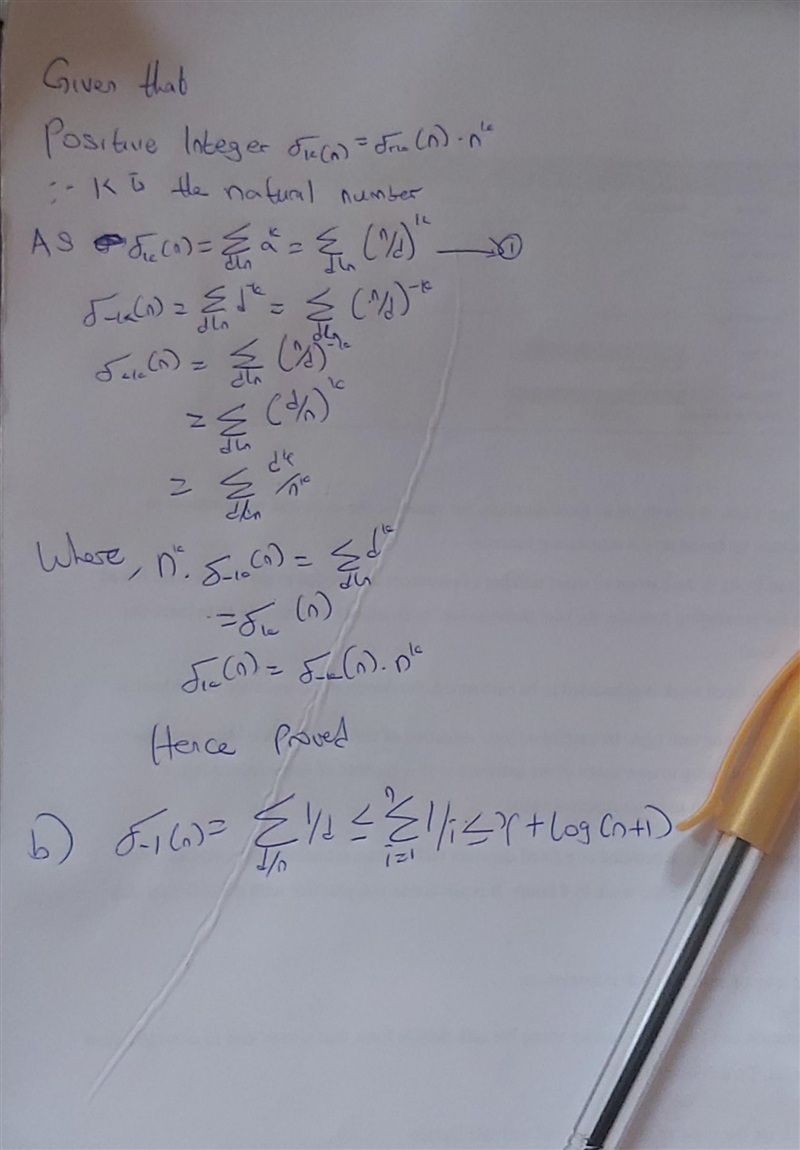 Given that
Positive Integer σk(n) = σ-k(n) · n^k
:- K is the natural number
As σk(n) = Σ_{d|n} d^k = Σ_{d|n} (n/d)^k → ①
σ-k(n) = Σ_{d|n} d^-k = Σ_{d|n} (n/d)^-k
σ-k(n) = Σ_{d|n} (n/d)^-k
= Σ_{d|n} (d/n)^k
= Σ_{d|n} d^k/n^k
Where, n^k · σ-k(n) = Σ_{d|n} d^k
= σk(n)
σk(n) = σ-k(n) · n^k
Hence Proved
b) σ-1(n) = Σ_{d/n} 1/d ≤ Σ_{i=1}^{n} 1/i ≤ γ + log(n+1)